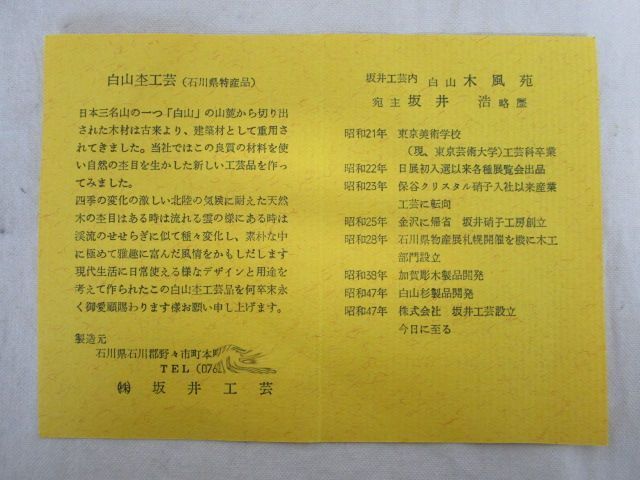 白山杢工芸（石川県特産品）
日本三名山の一つ「白山」の山麓から切り出
された木材は古来より、建築材として重用さ
れてきました。当社ではこの良質の材料を使
い自然の杢目を生かした新しい工芸品を作っ
てみました。
四季の変化の激しい北陸の気候に耐えた天然
木の杢目はある時は流れる雲の様にある時は
渓流のせせらぎに似て種々変化し、素朴な中
に極めて雅趣に富んだ風情をかもしだします
現代生活に日常使える様なデザインと用途を
考えて作られたこの白山杢工芸品を何卒末永
く御愛顧賜わります様お願い申し上げます。
製造元
石川県石川郡野々市町本町
TEL（076
㈱ 坂井工芸
坂井工芸内 白山 木風苑
宛主 坂井 浩 略歴
昭和21年 東京美術学校
（現、東京芸術大学）工芸科卒業
昭和22年 日展初入選以来各種展覧会出品
昭和23年 保谷クリスタル硝子入社以来産業
工芸に転向
昭和25年 金沢に帰省 坂井硝子工房創立
昭和28年 石川県物産展札幌開催を機に木工
部門設立
昭和38年 加賀彫木製品開発
昭和47年 白山杉製品開発
昭和47年 株式会社 坂井工芸設立
今日に至る